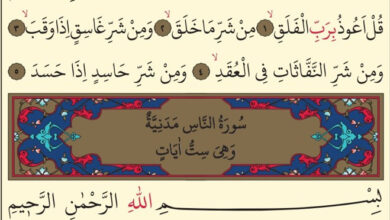 قُلْ اَعُوذُ بِرَبِّ الْفَلَقِۙ ﴿١﴾ مِنْ شَرِّ مَا خَلَقَۙ ﴿٢﴾ وَمِنْ شَرِّ غَاسِقٍ اِذَا وَقَبَۙ ﴿٣﴾
وَمِنْ شَرِّ النَّفَّاثَاتِ فِي الْعُقَدِۙ ﴿٤﴾ وَمِنْ شَرِّ حَاسِدٍ اِذَا حَسَدَ ﴿٥﴾
سُورَةُ النَّاسِ مَدَنِيَّةٌ
وَهِيَ سِتُّ اٰيَاتٍ
بِسْمِ اللهِ الرَّحْمٰنِ الرَّحِيمِ